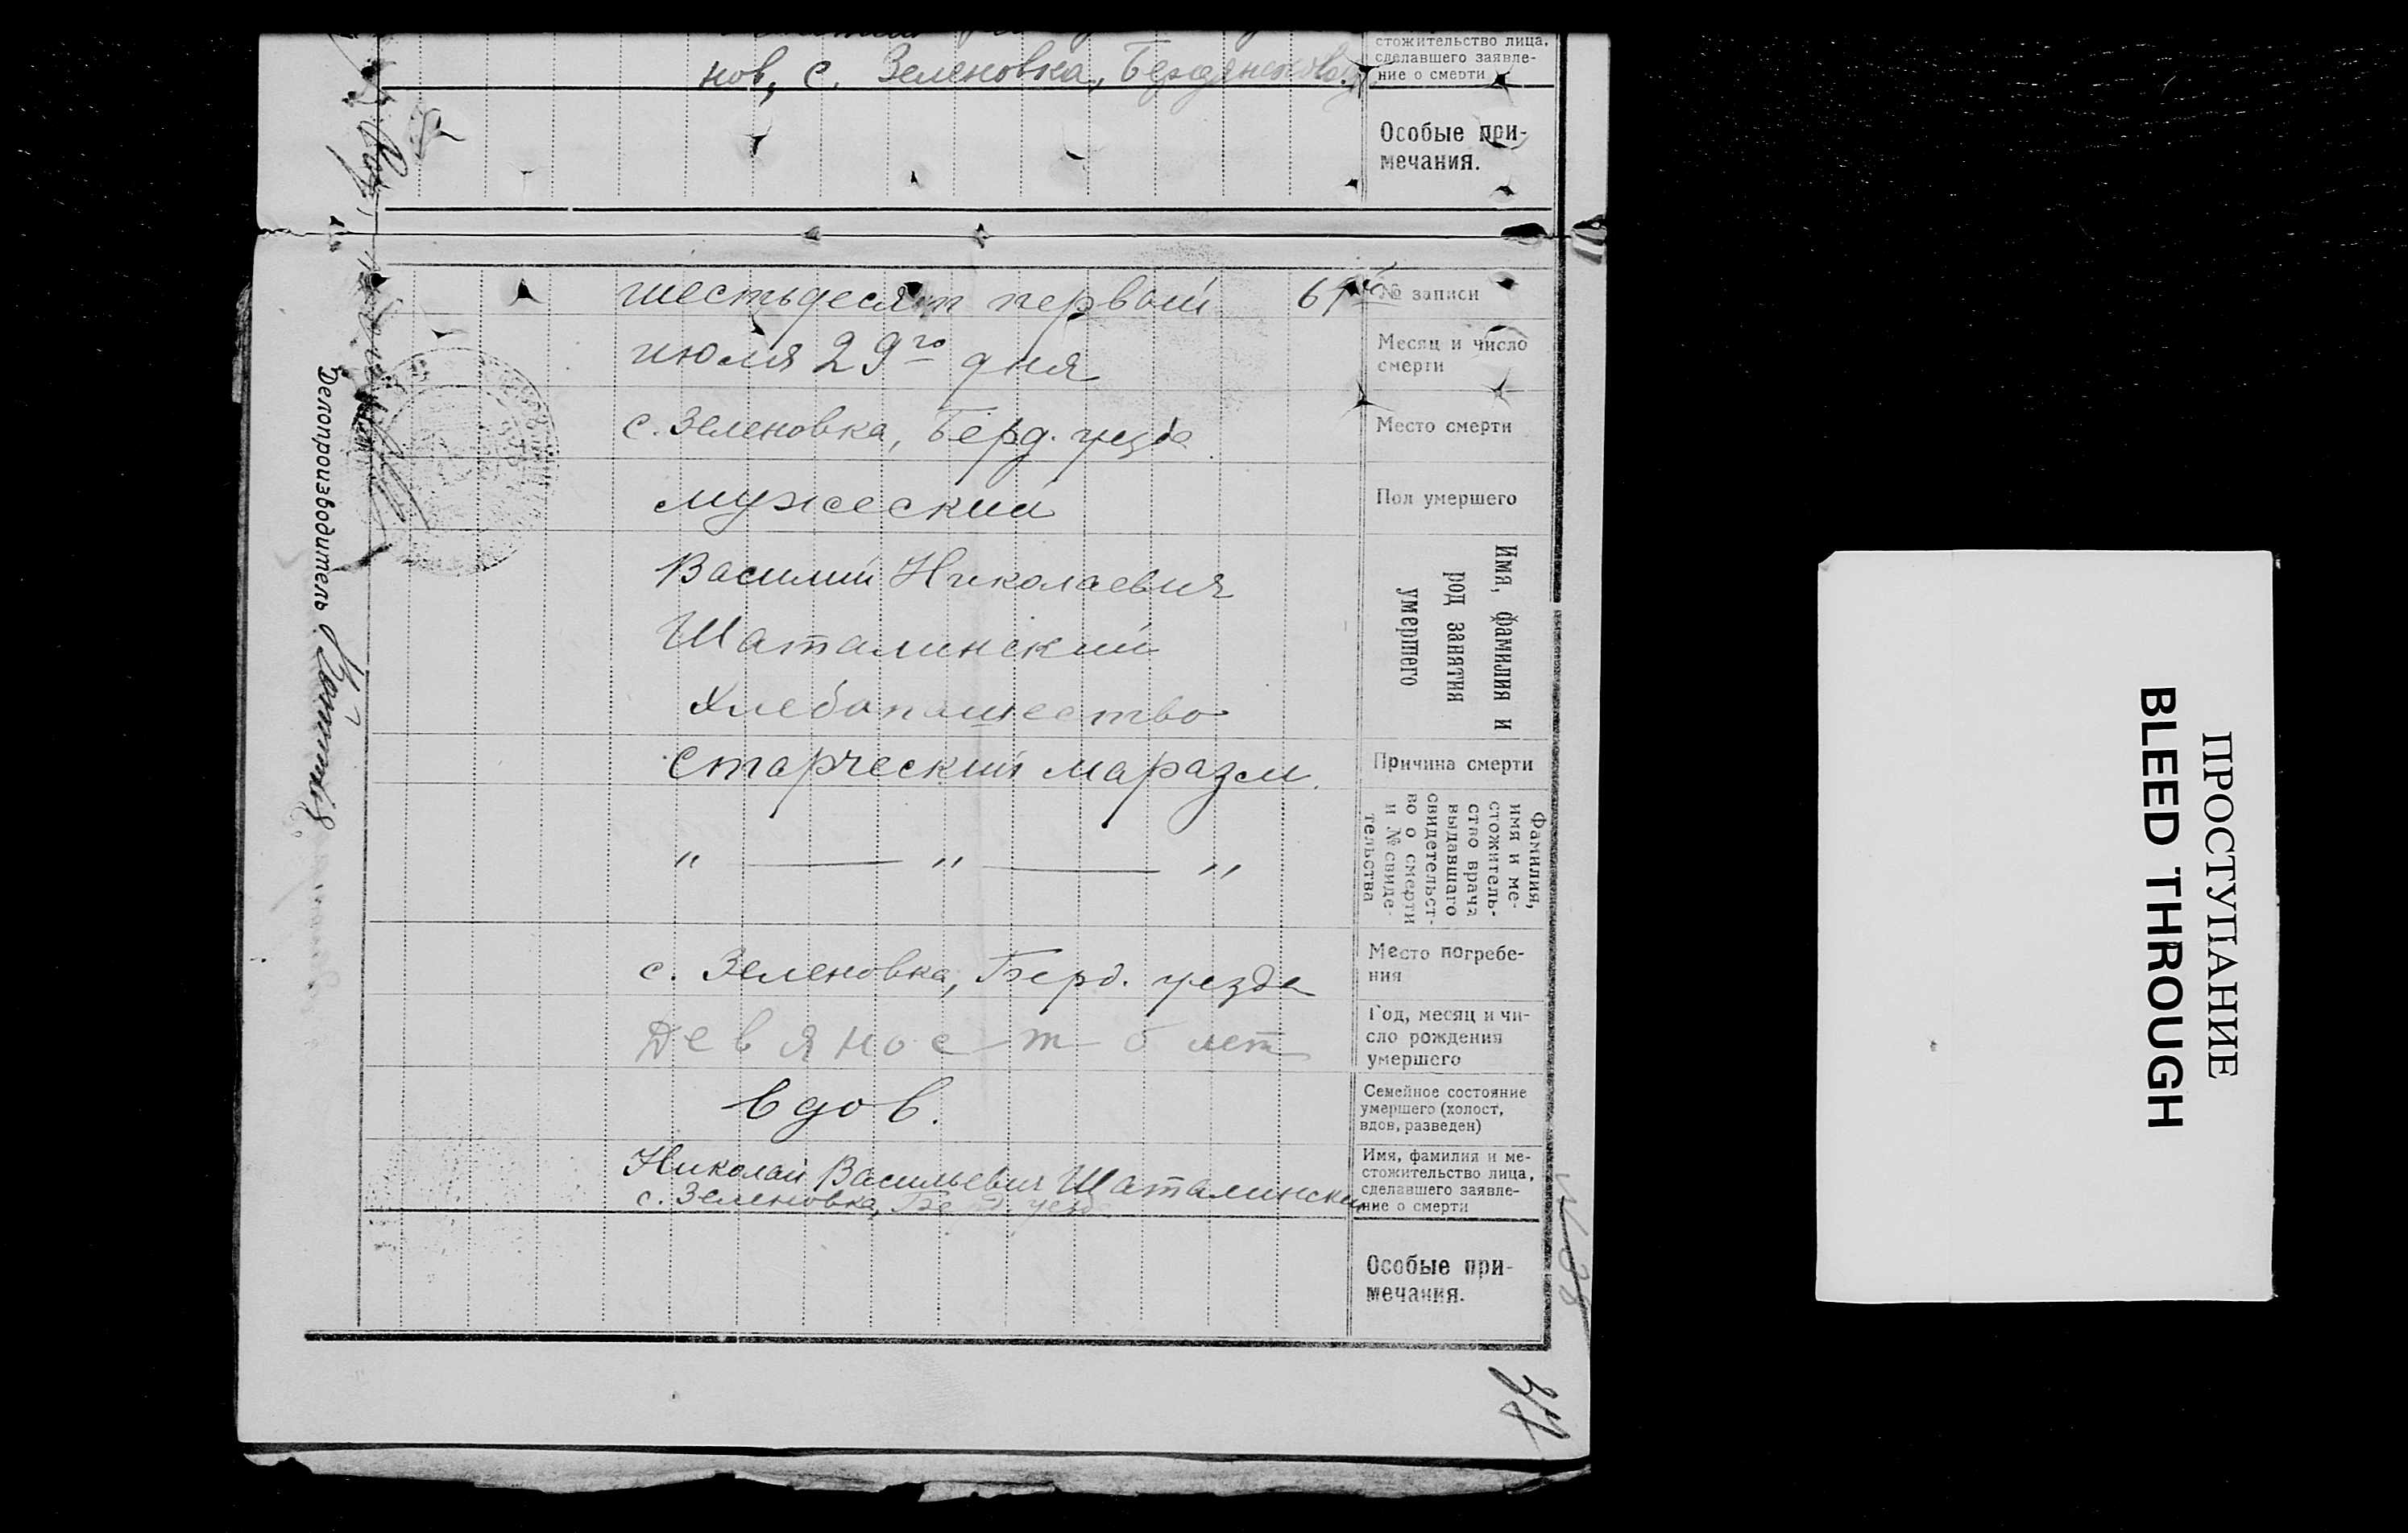 нов, с. Зеленовка, Бердянского у.
стожительство лица,
сделавшего заявле-
ние о смерти
Особые при-
мечания.
шестьдесят первый 61й
№ записи
июля 29го дня
Месяц и число
смерти
с. Зеленовка, Берд. уезда
Место смерти
мужеский
Пол умершего
Василий Николаевич
Шаталинский
Хлебопашество
Имя, фамилия и
род занятия
умершего
Старческий маразм.
Причина смерти
" — " — "
Фамилия,
имя и ме-
стожитель-
ство врача
выдавшаго
свидетельст-
во о смерти
и № свиде-
тельства
с. Зеленовка, Берд. уезда
Место погребе-
ния
Девяносто лет
Год, месяц и чи-
сло рождения
умершего
вдов.
Семейное состояние
умершего (холост,
вдов, разведен)
Николай Васильевич Шаталинский
с. Зеленовка, Берд. уезд
Имя, фамилия и ме-
стожительство лица,
сделавшего заявле-
ние о смерти
Особые при-
мечания.
Делопроизводитель
ПРОСТУПАНИЕ
BLEED THROUGH